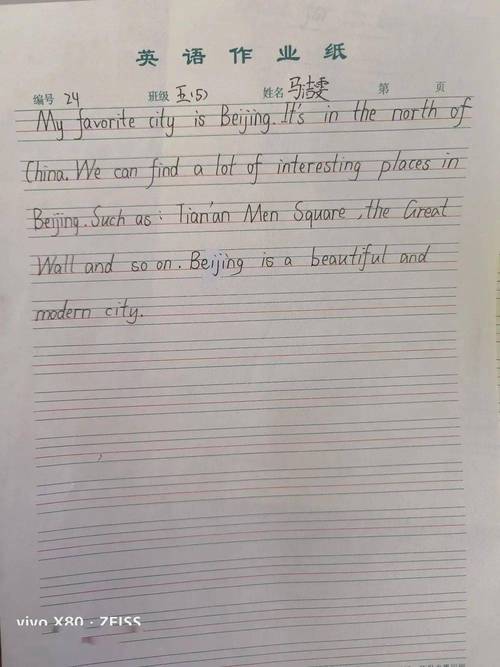 英语作业纸
编号 24 班级 五(5) 姓名 马洁雯 第 页
My favorite city is Beijing. It's in the north of
China. We can find a lot of interesting places in
Beijing. Such as: Tian'an Men Square, the Great
Wall and so on. Beijing is a beautiful and
modern city.
vivo X80 · ZEISS